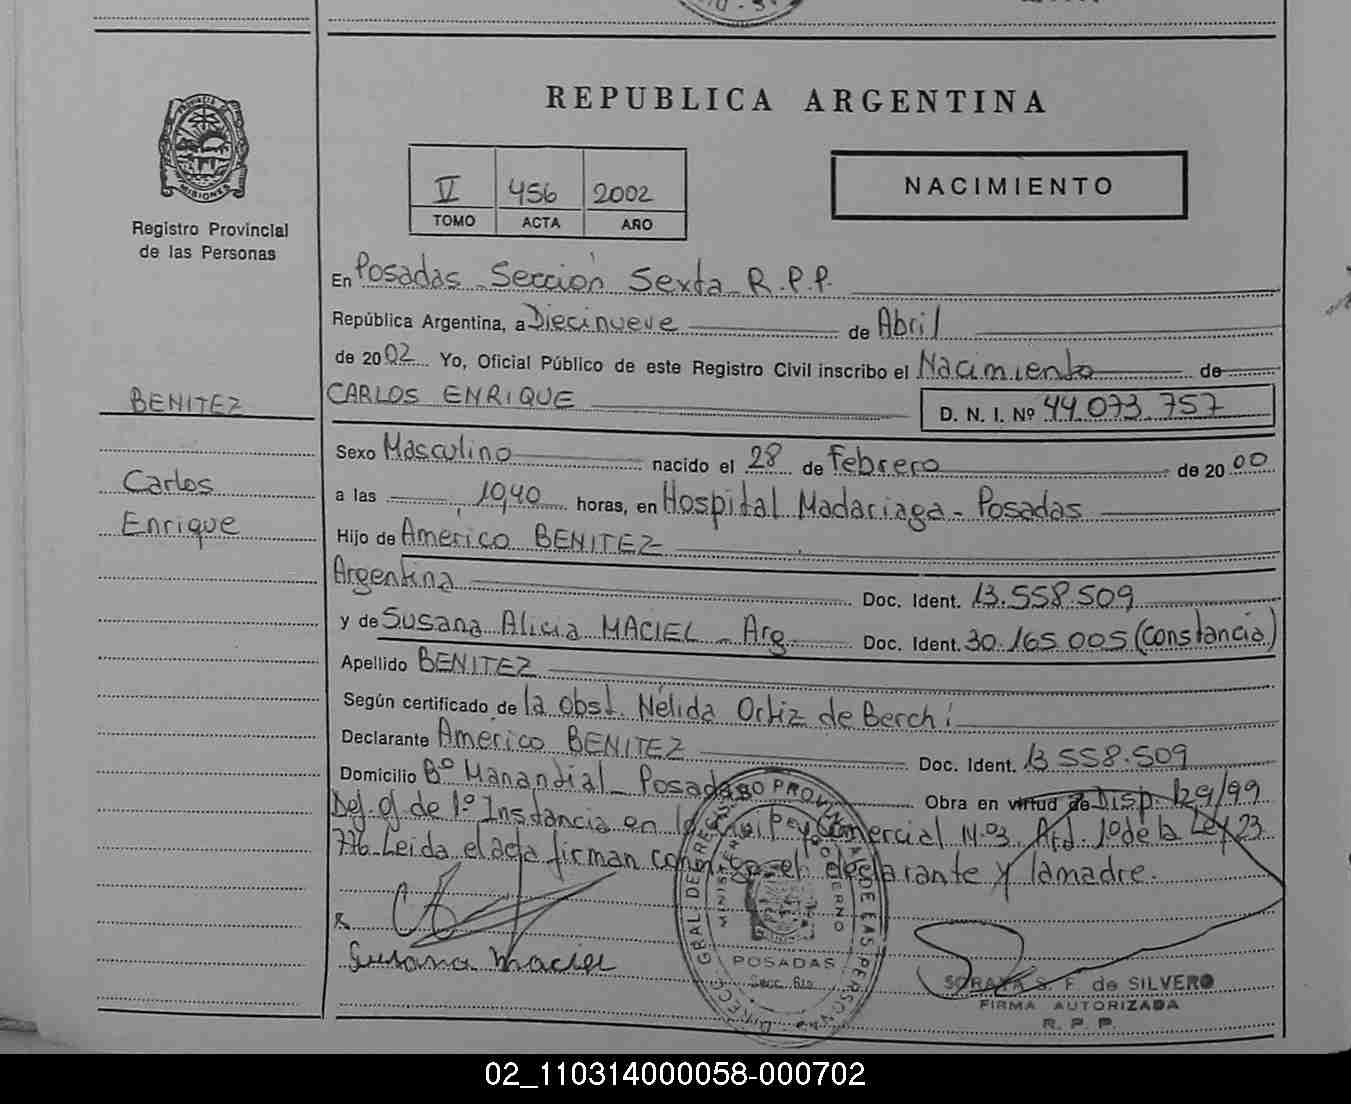 REPUBLICA ARGENTINA
MISIONES
Registro Provincial
de las Personas
V 456 2002
TOMO ACTA AÑO
NACIMIENTO
En Posadas - Sección Sexta R.P.P.
República Argentina, a Diecinueve de Abril
de 2002 Yo, Oficial Público de este Registro Civil inscribo el Nacimiento de
BENITEZ
CARLOS ENRIQUE D. N. I. Nº 44.073.757
Sexo Masculino nacido el 28 de Febrero de 2000
Carlos
a las 10,40 horas, en Hospital Madariaga - Posadas
Enrique
Hijo de Américo BENITEZ
Argentina Doc. Ident. 13.558.509
y de Susana Alicia MACIEL - Arg Doc. Ident. 30.165.005 (constancia)
Apellido BENITEZ
Según certificado de la obst. Nélida Ortiz de Berchi
Declarante Américo BENITEZ Doc. Ident. 13 558.509
Domicilio Bº Manandial - Posadas Obra en virtud de Disp. 129/99
Def. of de 1º Instancia en lo Civil y Comercial Nº3. Art. 1º de la Ley 23.
776. Leida el acta firman conmigo el declarante y la madre.
Susana Maciel
POSADAS
SORAYA S. F. de SILVERO
FIRMA AUTORIZADA
R. P. P.
02_110314000058-000702